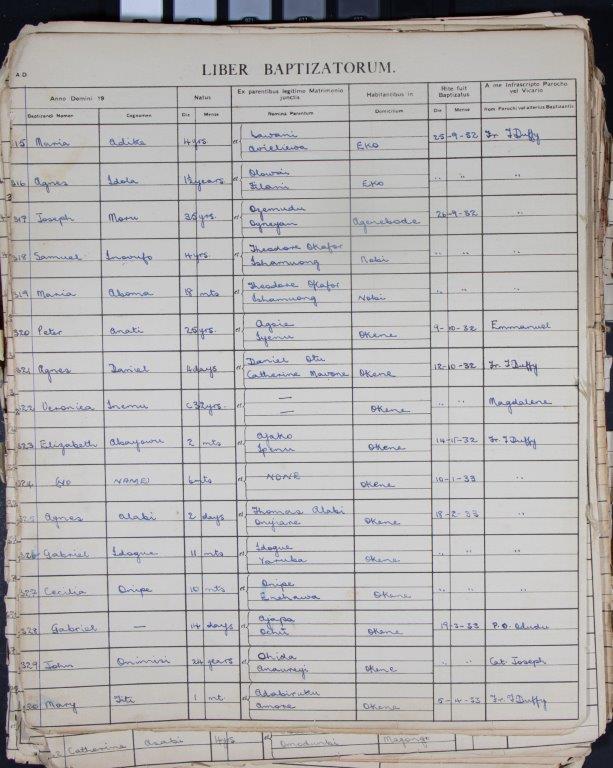 LIBER BAPTIZATORUM.
A.D
Anno Domini 19 Natus Ex parentibus legitimo Matrimonio junctis Habitantibus in Rite fuit Baptizatus A me Infrascripto Parocho vel Vicario
Baptizandi Nomen Cognomen Die Mense Nomina Parentum Domicilium Die Mense Nom Parochi vel alterius Baptizantis
315 Maria Adike 4 yrs et Lawani EKO 25-9-32 Fr. J Duffy
316 Agnes Idola 1½ years et Olowoi EKO " " "
Filani
317 Joseph Momu 35 yrs. et Ozemudu Agenebode 26-9-32 "
Ogneyan
318 Samuel 4 yrs. et Theodore Okafor Nobi " " "
Ishamuong
319 Maria Aboma 18 mts et Theodore Okafor Nobi " " "
Ishamuong
320 Peter Anati 25 yrs. et Agoie Okene 9-10-32 Emmanuel
Iyenu
321 Agnes Daniel 4 days et Daniel Otu Okene 12-10-32 Fr. J Duffy
Catherine Mavone
322 Veronica Inemu c 32 yrs. et — Okene " " Magdalene
—
323 Elizabeth Abayowu 2 mts et Ajako Okene 14-11-32 Fr. J Duffy
Ipemu
324 (NO NAME) 6 mts et NONE Okene 10-1-33 "
325 Agnes Alabi 2 days et Thomas Alabi Okene 18-2-33 "
Onyiane
326 Gabriel Idogue 11 mts et Idogue Okene " " "
Yaruba
327 Cecilia Onipe 10 mts et Onipe Okene " " "
Enehawa
328 Gabriel — 14 days et Ajapa Okene 19-3-33 P. O. Oludu
Ochu
329 John Onimisi 24 years et Ohida Okene " " Cat. Joseph
Anauregi
330 Mary Titi 1 mt. et Adabiruku Okene 5-4-33 Fr. J Duffy
Amore
Catherine Asabi 4 yrs et Omodunbi